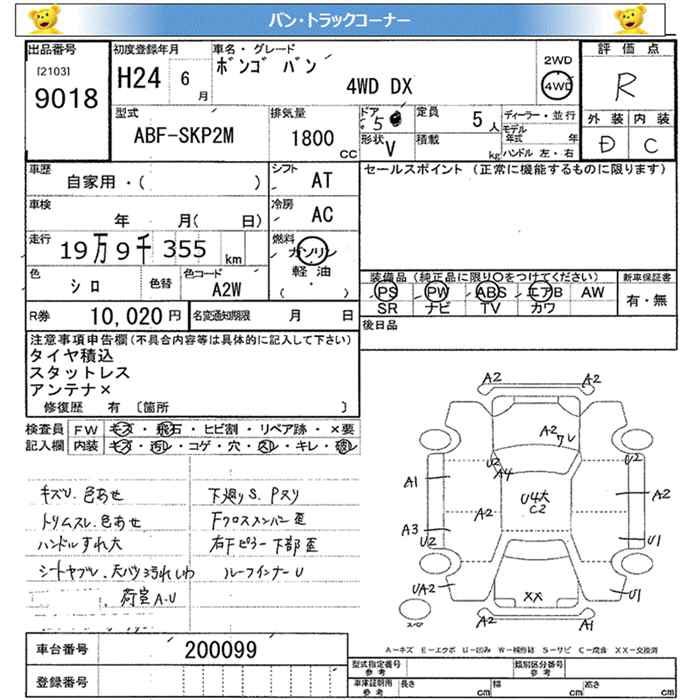 バン・トラックコーナー
出品番号 初度登録年月 車名・グレード 評価点
[2103] 9018 H24 6月 ボンゴ バン 4WD DX 2WD 4WD R
外装 内装
D C
型式 排気量 ドア 定員 ディーラー・並行
ABF-SKP2M 1800CC 5 5人 モデル年式 年
形状 V 積載 kg ハンドル 左・右
車歴 シフト セールスポイント (正常に機能するものに限ります)
自家用・( ) AT
車検 冷房
年 月( 日) AC
走行 燃料
19万9千355km ガソリン 軽油 ( ・ )
色 色替 色コード
シロ A2W
装備品(純正品に限り○をつけてください) 新車保証書
PS PW ABS エアB AW 有・無
SR ナビ TV カワ
R券 10,020円 名変通知期限 月 日
後日品
注意事項申告欄(不具合内容等は具体的に記入して下さい)
タイヤ積込
スタットレス
アンテナ×
修復歴 有 〔箇所 〕
検査員 FW キズ・飛石・ヒビ割・リペア跡・×要
記入欄 内装 キズ・汚レ・コゲ・穴・スレ・キレ・破レ
キズU.色あせ 下廻りS.Pスリ
トリムスレ.色あせ Fクロスメンバー歪
ハンドルすれ大 右下ピラー下部歪
シートヤブレ.天バリ汚れしわ ルーフインナーU
荷室A.U
A2 A2
A2 U
U2 A4 U2
A1 U4大 C2 A2
A2
A3 U2 U1
UA2 XX U1
スペア A2 A1
A-キズ E-エクボ U-凹み W-補修跡 S-サビ C-腐食 XX-交換済
車台番号 200099
型式指定番号 参考 類別区分番号 参考
登録番号
車庫証明用 参考 長さ cm 幅 cm 高さ cm